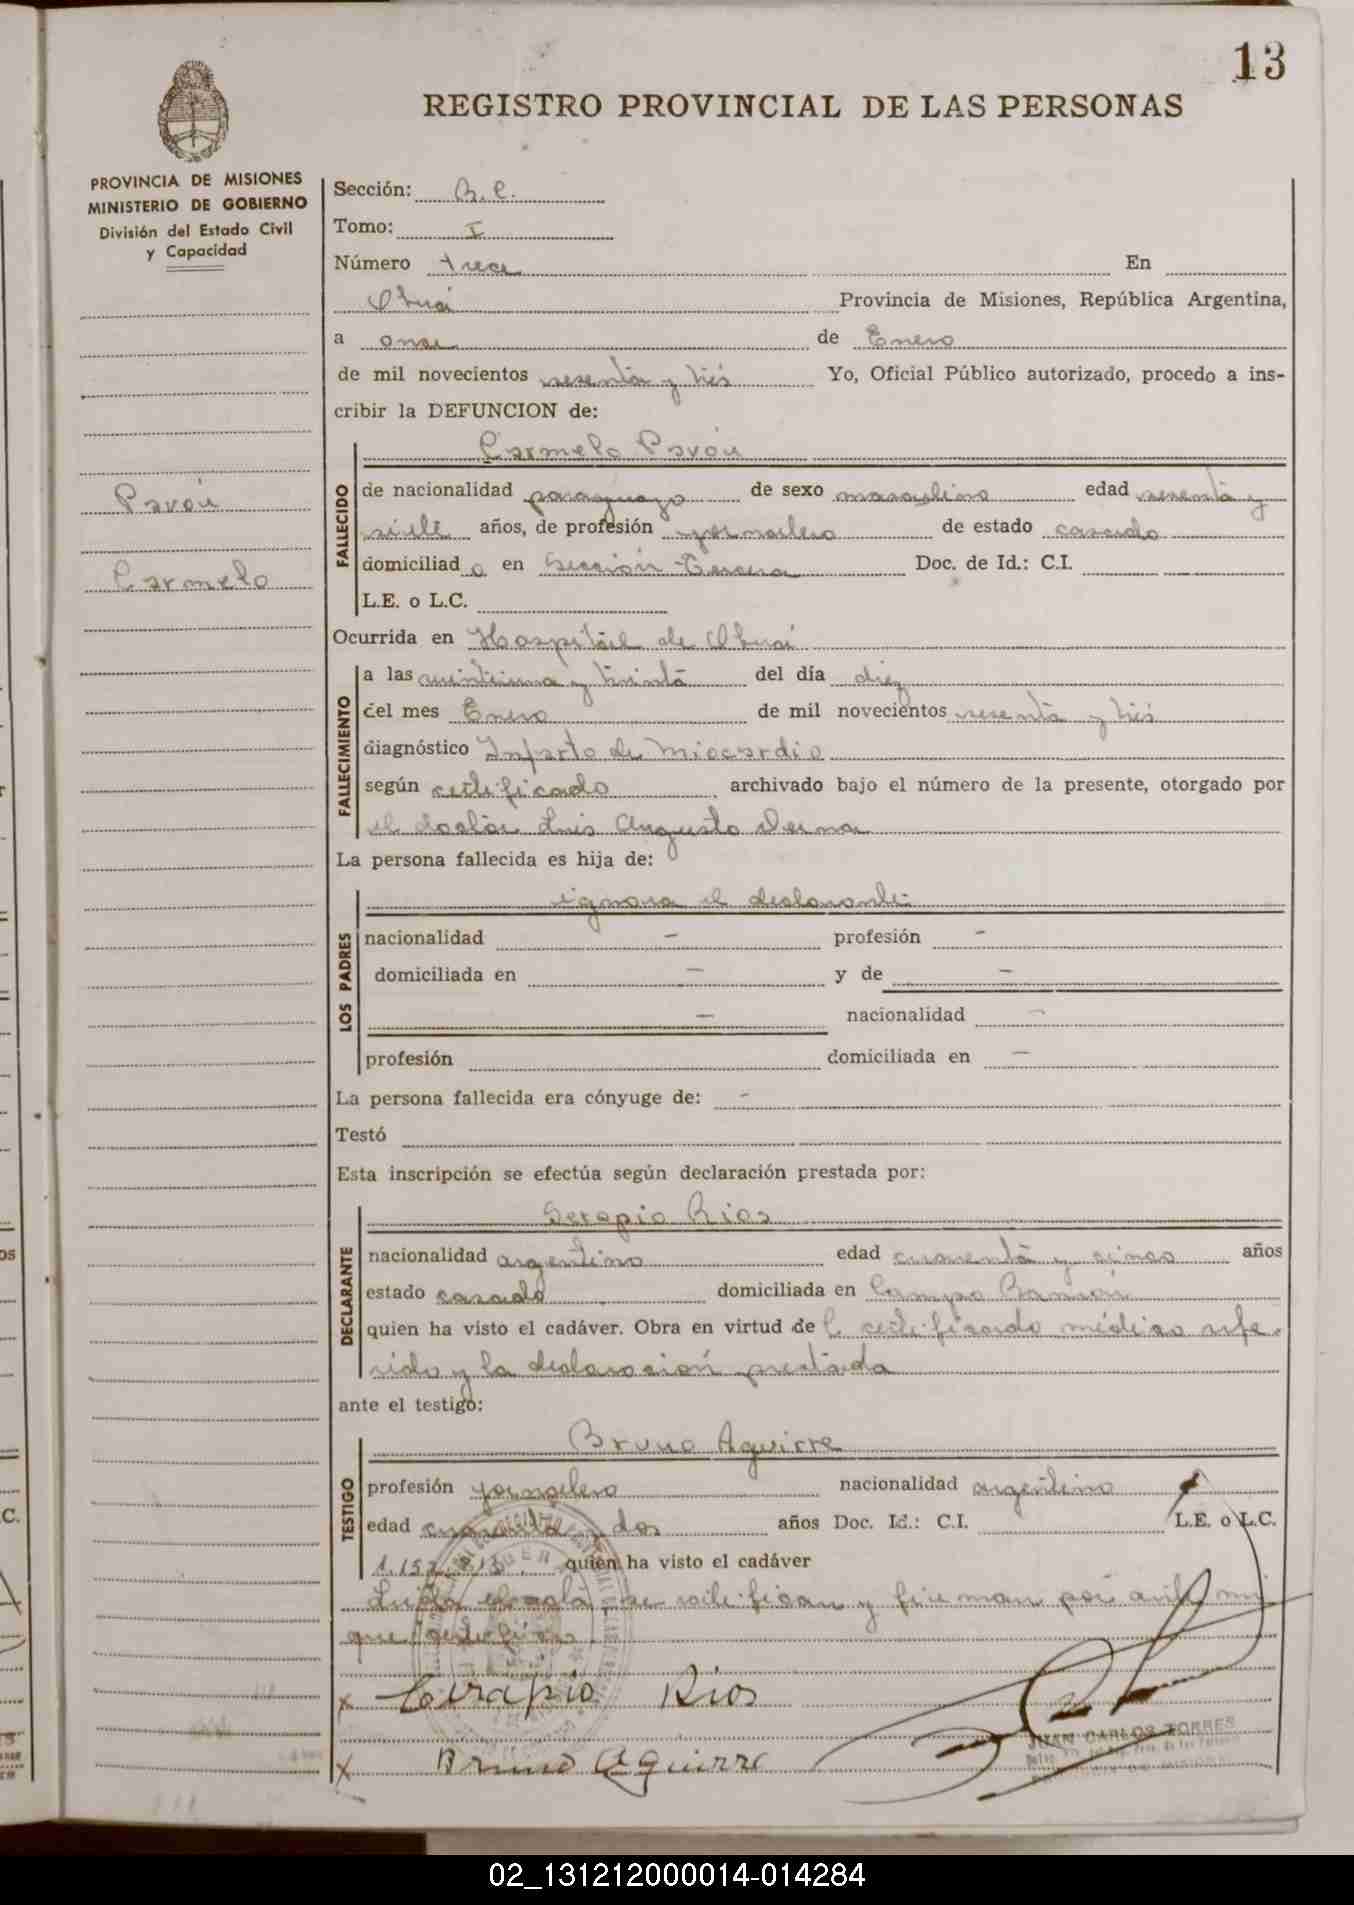 13
REGISTRO PROVINCIAL DE LAS PERSONAS
PROVINCIA DE MISIONES
MINISTERIO DE GOBIERNO
División del Estado Civil
y Capacidad
Pavón
Carmelo
Sección: B. C.
Tomo: I
Número trece En
Oberá Provincia de Misiones, República Argentina,
a once de Enero
de mil novecientos sesenta y tres Yo, Oficial Público autorizado, procedo a ins-
cribir la DEFUNCION de:
Carmelo Pavón
FALLECIDO
de nacionalidad paraguayo de sexo masculino edad sesenta y
siete años, de profesión jornalero de estado casado
domiciliad o en Sección Tercera Doc. de Id.: C.I.
L.E. o L.C.
Ocurrida en Hospital de Oberá
FALLECIMIENTO
a las veintiuna y treinta del día diez
del mes Enero de mil novecientos sesenta y tres
diagnóstico Infarto de Miocardio
según certificado archivado bajo el número de la presente, otorgado por
el doctor Luis Augusto Derna
La persona fallecida es hija de:
LOS PADRES
ignora el declarante
nacionalidad - profesión -
domiciliada en - y de -
- nacionalidad -
profesión domiciliada en -
La persona fallecida era cónyuge de: -
Testó
Esta inscripción se efectúa según declaración prestada por:
DECLARANTE
Serapio Rios
nacionalidad argentino edad cuarenta y cinco años
estado casado domiciliada en Campo Ramón
quien ha visto el cadáver. Obra en virtud de l certificado médico refe-
rido y la declaración prestada
ante el testigo:
TESTIGO
Bruno Aguirre
profesión jornalero nacionalidad argentino
edad cuarenta y dos años Doc. Id.: C.I. L.E. o L.C.
quien ha visto el cadáver
Leida el acta, se ratifican y firman por ante mi
que certifico
x Serapio Rios
x Bruno Aguirre
JUAN CARLOS TORRES
02_131212000014-014284